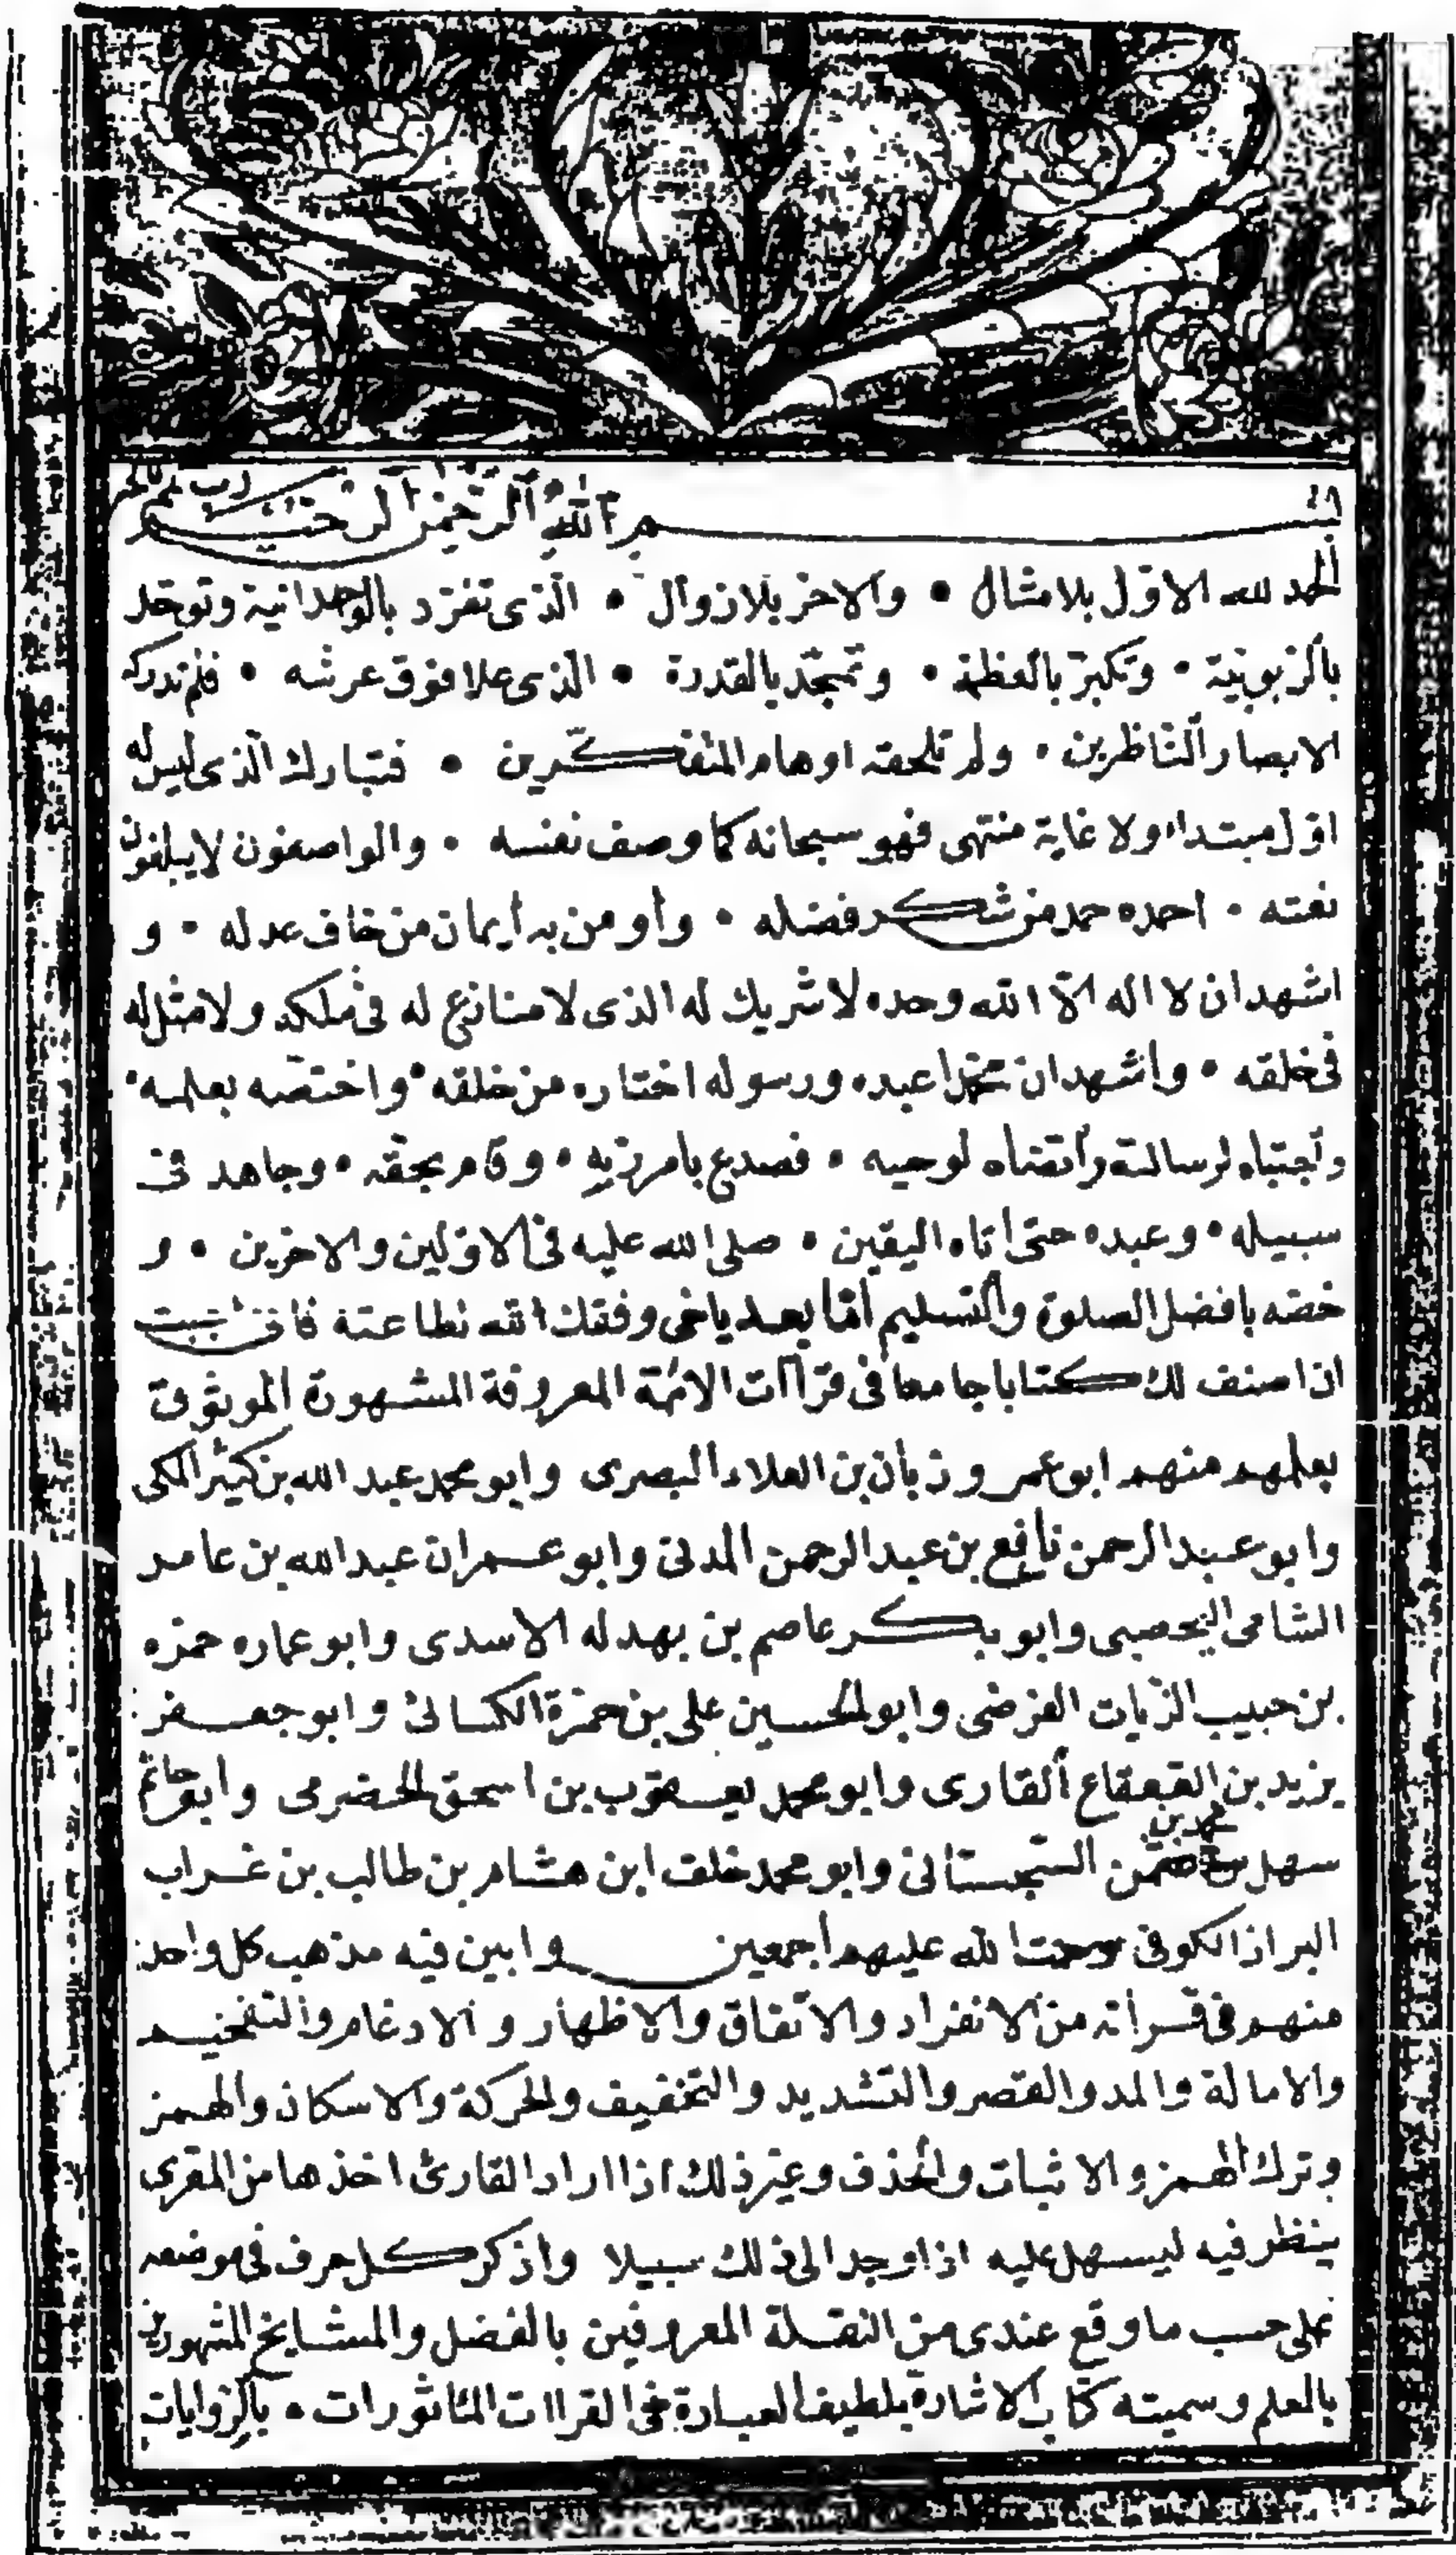 بسم الله الرحمن الرحيم رب تمم بالخير
الحمد لله الاول بلا مثال • والاخر بلا زوال • الذى تفرد بالوحدانية وتوحد
بالربوبية • وتكبر بالعظمة • وتمجد بالقدرة • الذى علا فوق عرشه • فلم تدركه
الابصار الناظرين • ولم تلحقه اوهام المتفكرين • فتبارك الذى ليس له
اول مبتداء ولا غاية منتهى فهو سبحانه كما وصف نفسه • والواصفون لا يبلغون
نعته • احمده حمد من شكر فضله • وأومن به أيمان من خاف عدله • و
اشهد ان لا اله الا الله وحده لا شريك له الذى لا منازع له فى ملكه ولا مثل له
فى خلقه • وأشهد ان محمدا عبده ورسوله اختاره من خلقه • واختصه بعلمه •
وأجتباه لرسالته وأتقناه لوحيه • فصدع بامر ربه • وقام بحقه • وجاهد فى
سبيله • وعبده حتى اتاه اليقين • صلى الله عليه فى الاولين والاخرين • و
خصه بافضل الصلوة والتسليم أما بعد ياخى وفقك الله لطاعته فانى
ان اصنف لك كتابا جامعا فى قراآت الائمة المعروفة المشهورة الموثوق
بعلمهم منهم ابو عمرو زبان بن العلاء البصرى وابو محمد عبد الله بن كثير المكى
وابو عبد الرحمن نافع بن عبد الرحمن المدنى وابو عمران عبد الله بن عامر
الشامى اليحصبى وابو بكر عاصم بن بهدله الاسدى وابو عماره حمزه
بن حبيب الزيات الفرضى وابو الحسين على بن حمزة الكسائى وابو جعفر
يزيد بن القعقاع ألقارى وابو محمد يعقوب بن اسحق الحضرمى وابو حاتم
سهل محمد بن السجستانى وابو محمد خلف ابن هشام بن طالب بن غراب
البراز الكوفى رحمت الله عليهم أجمعين وابين فيه مذهب كل واحد
منهم فى قرأته من الانفراد والاتفاق والاظهار والادغام والتفخيم
والامالة والمد والقصر والتشديد والتخفيف والحركة والاسكان والهمز
وترك الهمز والاثبات والحذف وغير ذلك اذا اراد القارئ اخذها من المقرى
ينظر فيه ليسهل عليه اذا وجد الى ذلك سبيلا واذكر كل حرف فى موضعه
على حسب ما وقع عندى من النقلة المعروفين بالفضل والمشايخ المشهورين
بالعلم وسميته كتاب الاشارة بلطيف العبارة فى القراات المأثورات • بالروايات